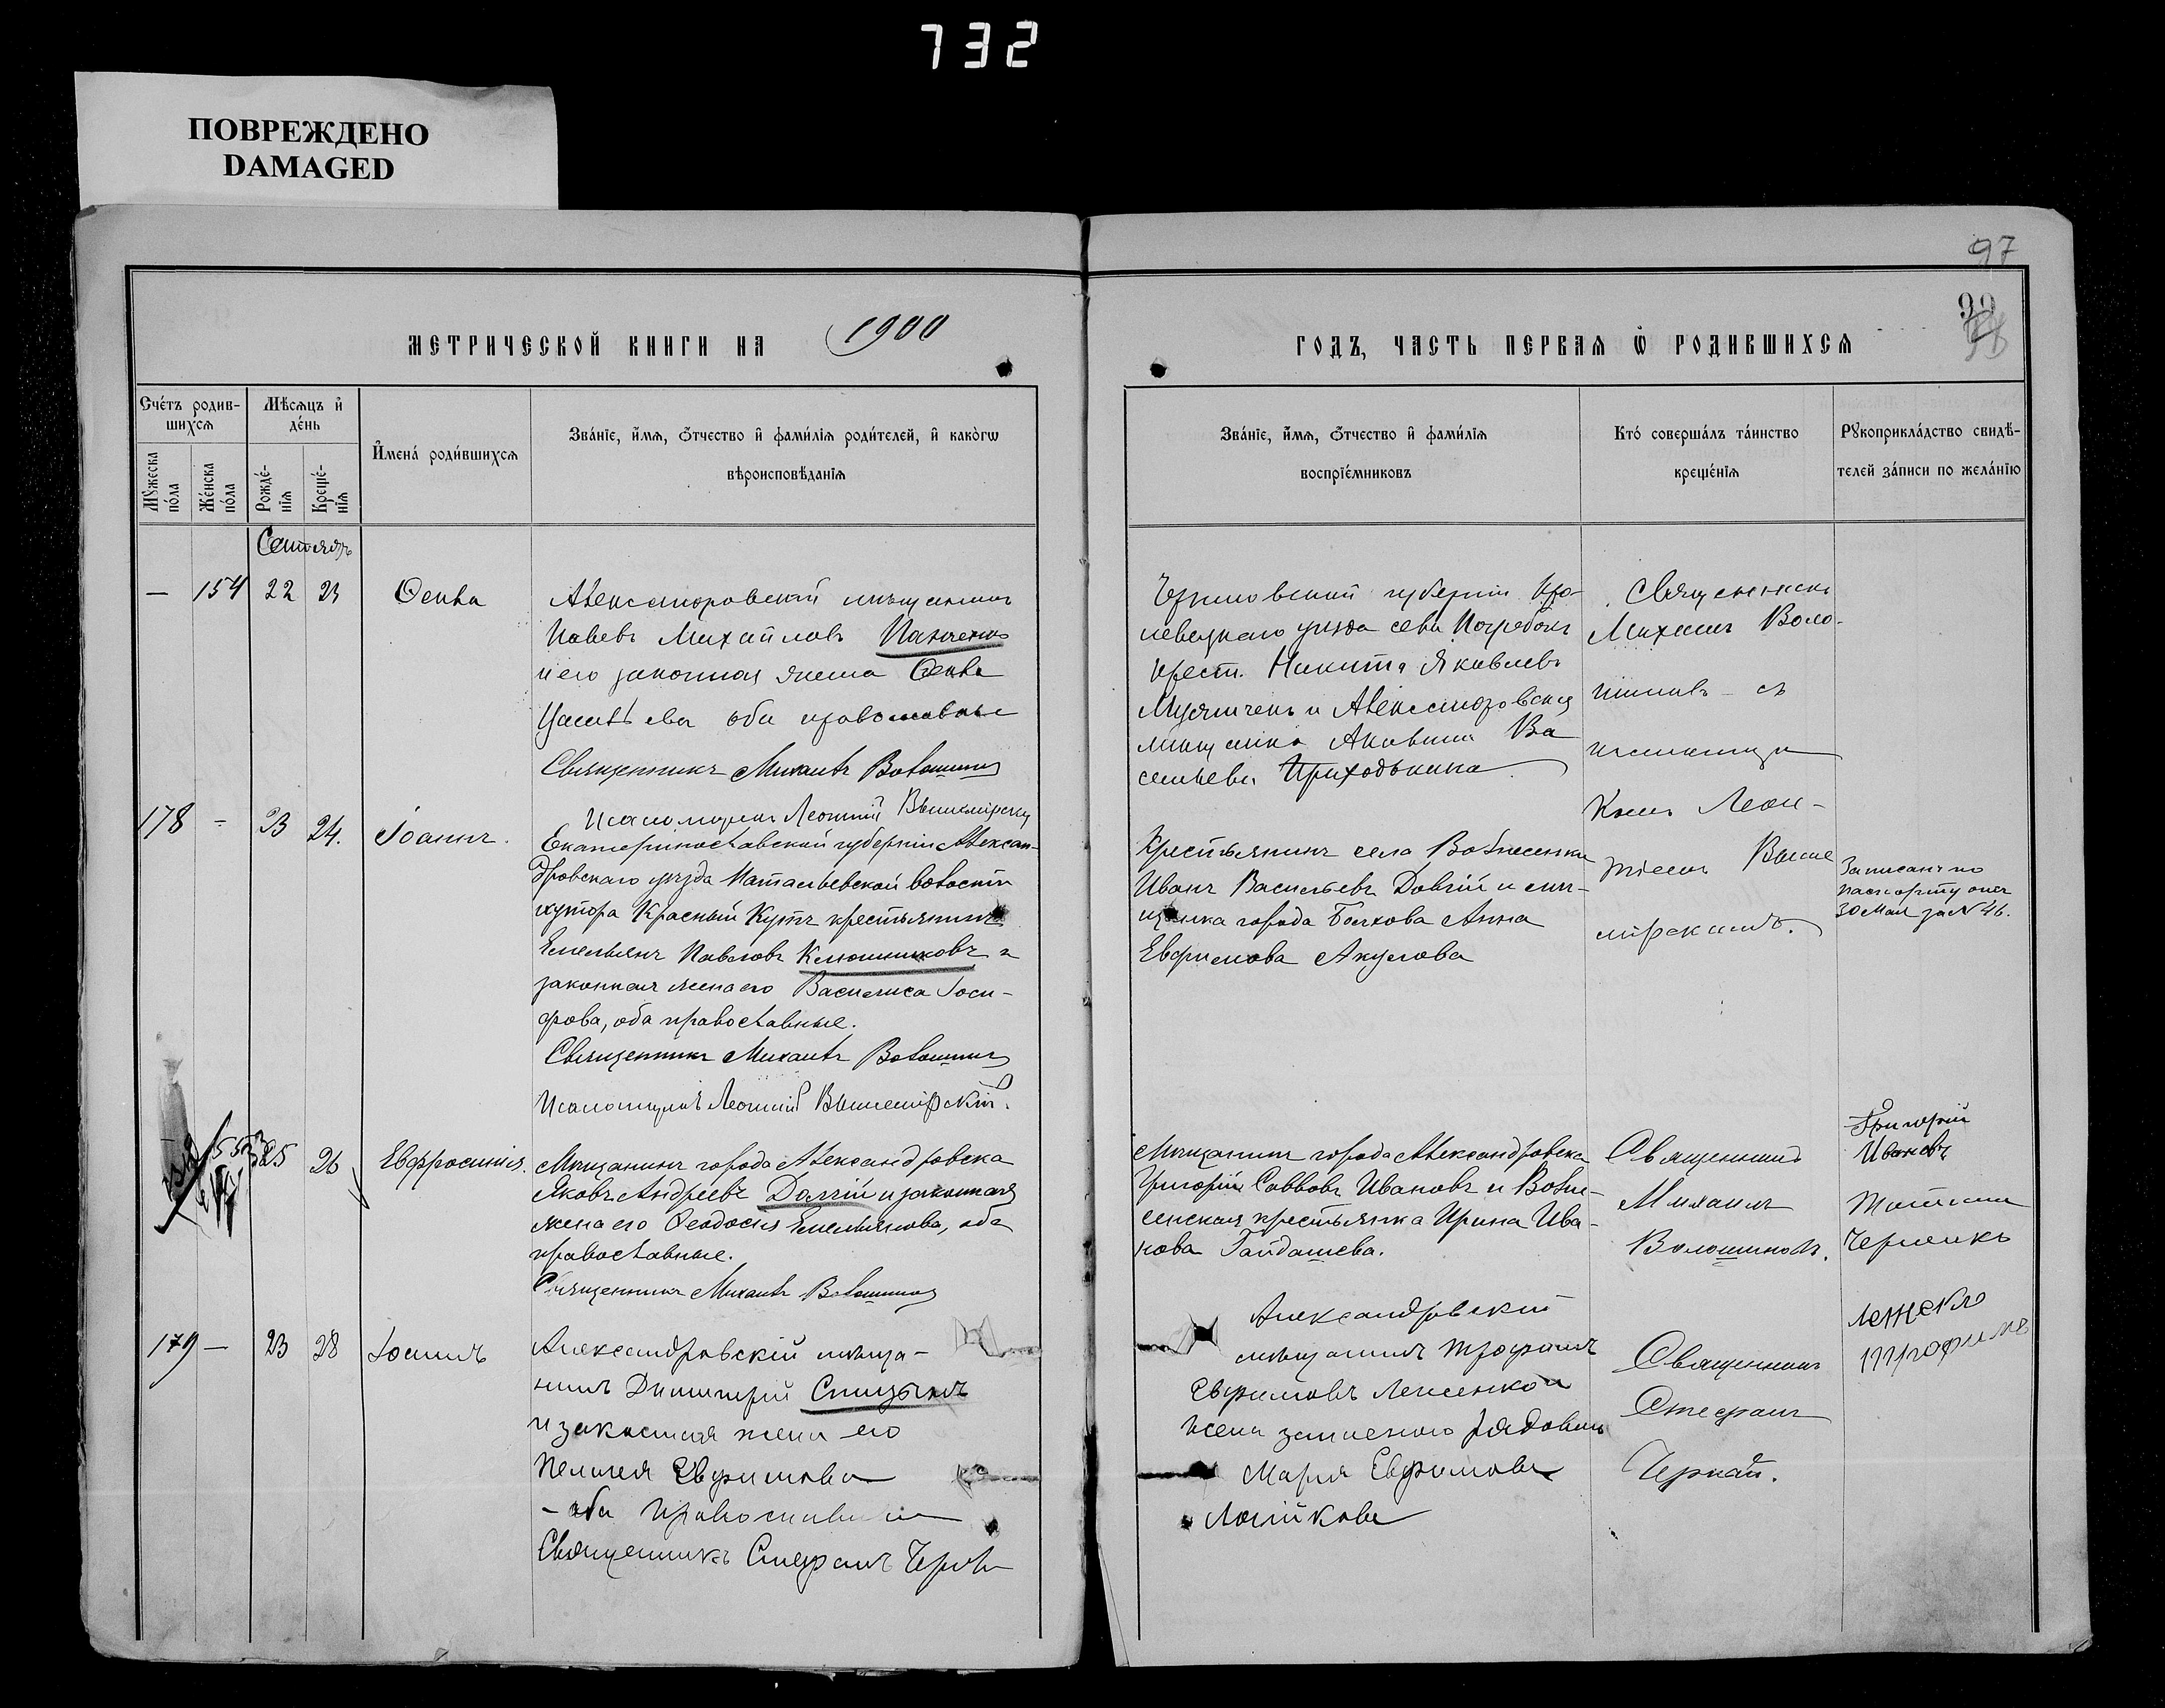 732
ПОВРЕЖДЕНО
DAMAGED
97
99
МЕТРИЧЕСКОЙ КНИГИ НА 1900
ГОДЪ, ЧАСТЬ ПЕРВАЯ Ѡ РОДИВШИХСЯ
Счетъ родив-
шихся
Мѣсяцъ и
день
Мужеска
пола
Женска
пола
Рожде-
нія
Креще-
нія
Имена родившихся
Званіе, имя, отчество и фамилія родителей, и какогѡ
вѣроисповѣданія
Званіе, имя, отчество и фамилія
воспріемниковъ
Кто совершалъ таинство
крещенія
Рукоприкладство свидѣ-
телей записи по желанію
Сентябрь
— 154 22 23 Ѳекла
Александровскій мѣщанинъ
Павелъ Михайловъ
и его законная жена Ѳекла
оба православные
Священникъ Михаилъ Волошинъ
Черниговской губерніи Кро-
левецкаго уѣзда села Погребокъ
крест. Никита Яковлевъ
и Александровская
мѣщанка Акилина Ва
сильева Приходькина
Священникъ
Михаилъ Воло-
шинъ съ
псаломщи
комъ Леон-
тіемъ Выше
мірскимъ.
178 - 23 24. Іоаннъ.
Псаломщикъ Леонтій Вышемірскій
Екатеринославской губерніи Алексан-
дровскаго уѣзда Натальевской волости
хутора Красный Кутъ крестьянинъ
Емельянъ Павловъ Клюшниковъ и
законная жена его Василиса Іоси-
фова, оба православные.
Священникъ Михаилъ Волошинъ
Псаломщикъ Леонтій Вышемірскій.
Крестьянинъ села Вознесенки
Иванъ Васильевъ Довгій и мѣ-
щанка города Болхова Анна
Евфимова Акулова
Записанъ по
паспорту отъ
30 Мая за № 46.
155 25 26 Евфросинія.
Мѣщанинъ города Александровска
Яковъ Андреевъ Долгій и законная
жена его Ѳеодосія Емельянова, оба
православные.
Священникъ Михаилъ Волошинъ
Мѣщанинъ города Александровска
Григорій Саввовъ Ивановъ и Возне-
сенская крестьянка Ирина Ива-
нова Гайдашева.
Священникъ
Михаилъ
Волошиновъ.
Григорій
Ивановъ
179 — 23 28 Іоаннъ
Александровскій мѣща-
нинъ Димитрій Спицынъ
и законная жена его
Пелагея Евфимова
- оба православные
Священникъ Стефанъ
Александровскій
мѣщанинъ Трофимъ
Евфимовъ Лисенко и
жена запаснаго рядоваго
Марія Евфимова
Священникъ
Стефанъ